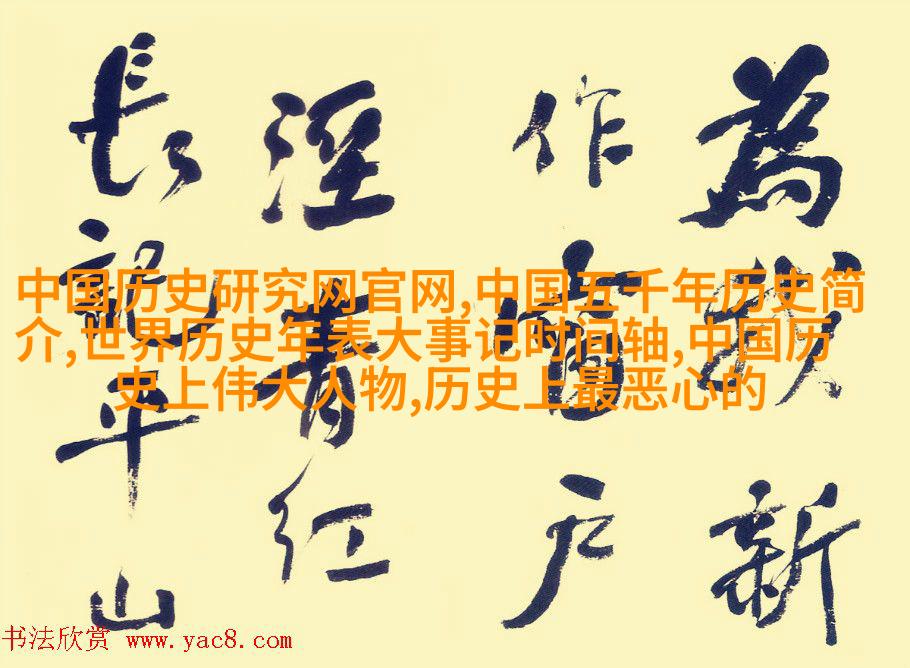 為我新
作窗户
溼青红
長記平山
中国历史研究网官网,中国五千年历史简
介,世界历史年表大事记时间轴,中国历
史上伟大人物,历史上最恶心的
书法欣赏 www.yac8.com